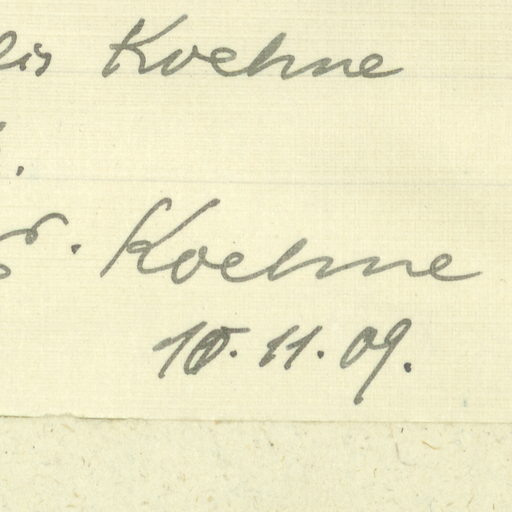 lis Koehne
E. Koehne
10.11.09.